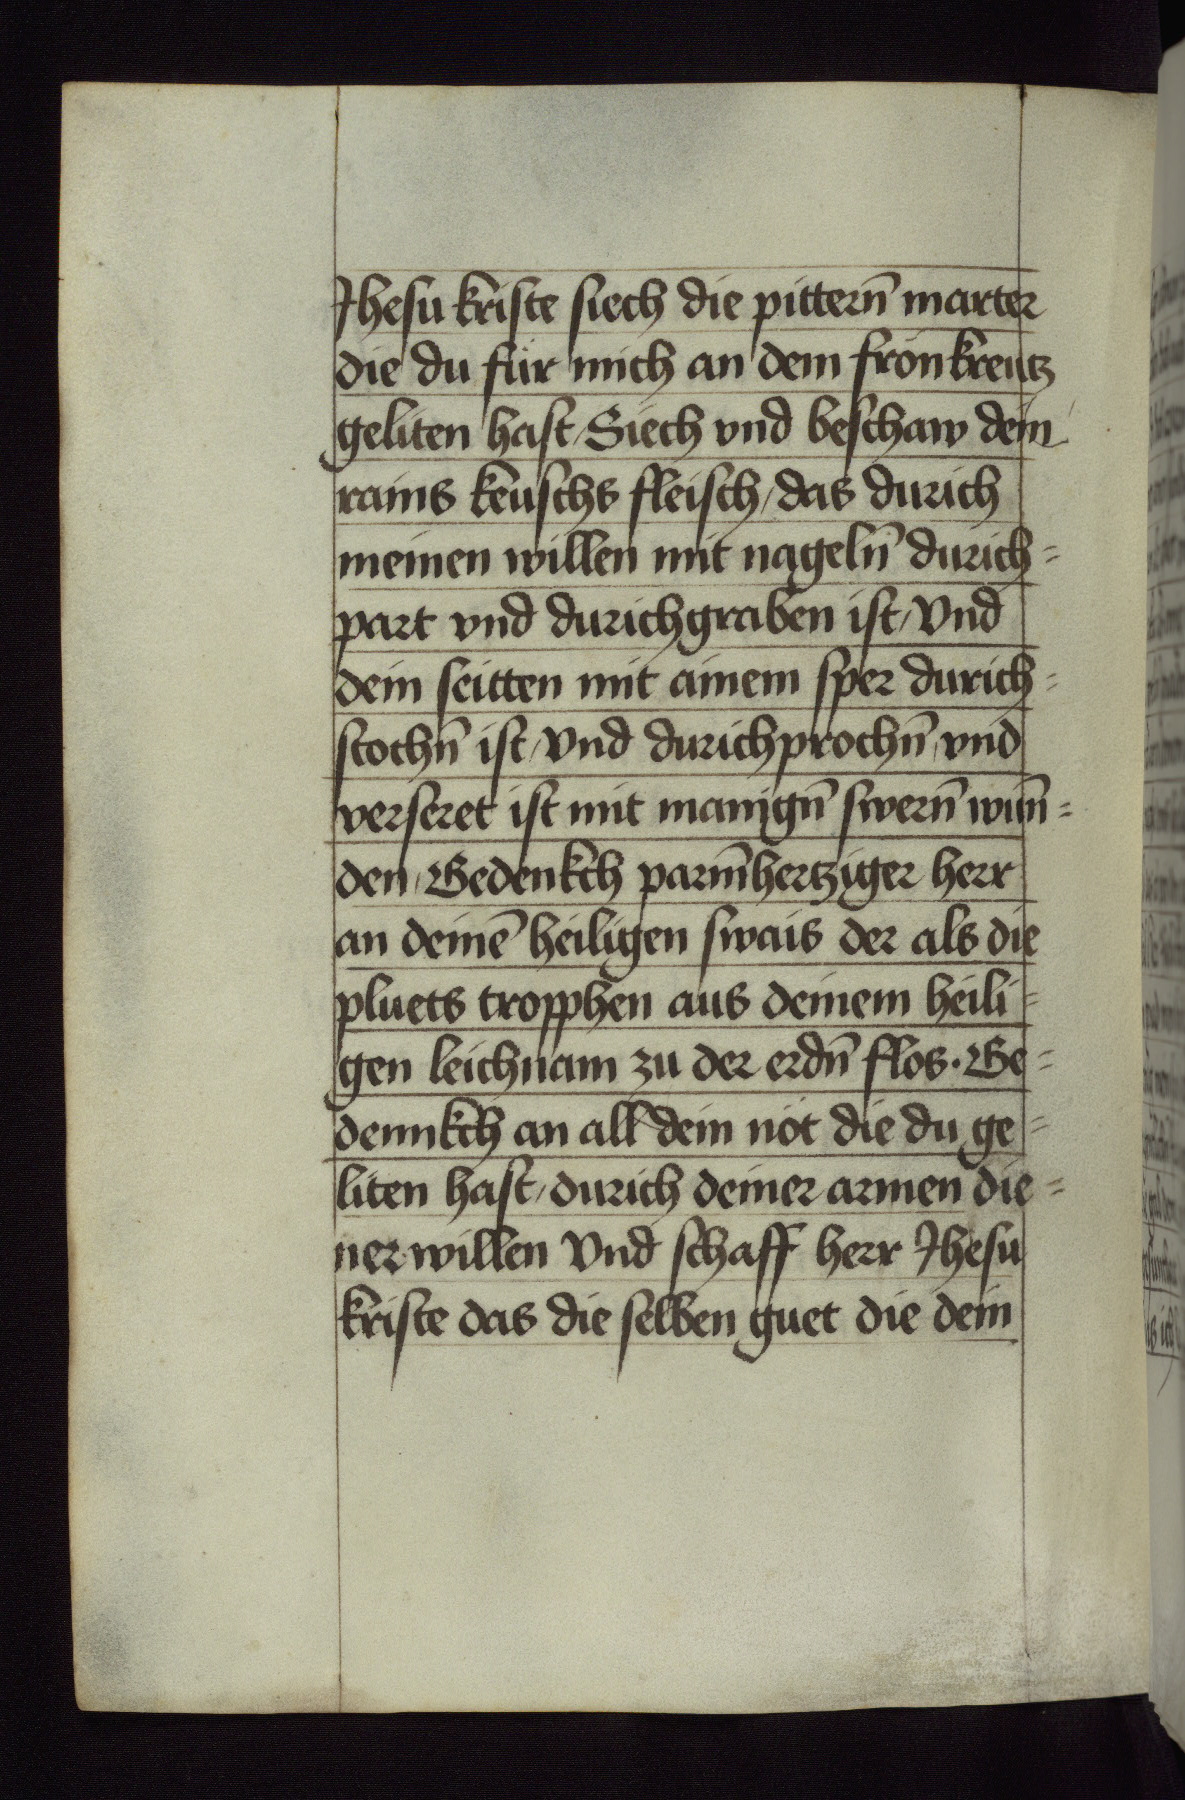 Jhesu kriste siech die pittern̄ marter
die du für mich an dem fronkreutz
geliten hast / Siech vnd beschaw dein
rains keuschs fleisch / das durich
meinen willen mit nageln̄ durich=
part vnd durichgraben ist / Vnd
dein seitten mit ainem sper durich=
stochn̄ ist / Vnd durichprochn̄ / vnd
verseret ist mit manign̄ swern̄ wun̄=
den / Gedenkch parm̄hertziger herr
an deinē heiligen swais der als die
pluets tropphen aus deinem heili=
gen leichnam zu der erdn̄ flos · Ge=
dennkch an all dein nöt die du ge=
liten hast / durich deiner armen die=
ner willen Vnd schaff herr Jhesu
kriste das die selben guet die dein